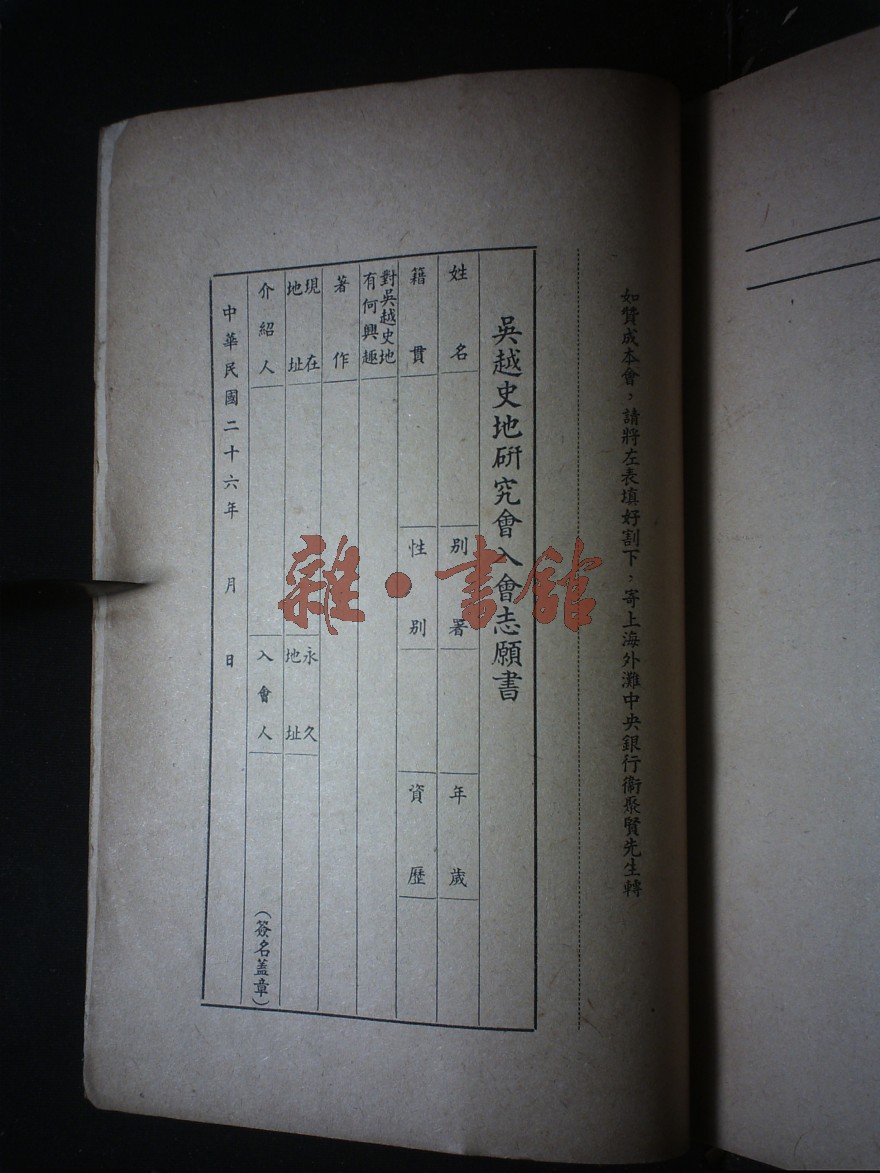 如贊成本會，請將左表填好割下，寄上海外灘中央銀行衞聚賢先生轉
吳越史地研究會入會志願書
姓名
别署
年歲
籍貫
性别
資歷
對吳越史地
有何興趣
著作
現在
地址
永久
地址
介紹人
入會人
（簽名盖章）
中華民國二十六年 月 日
雜·書館